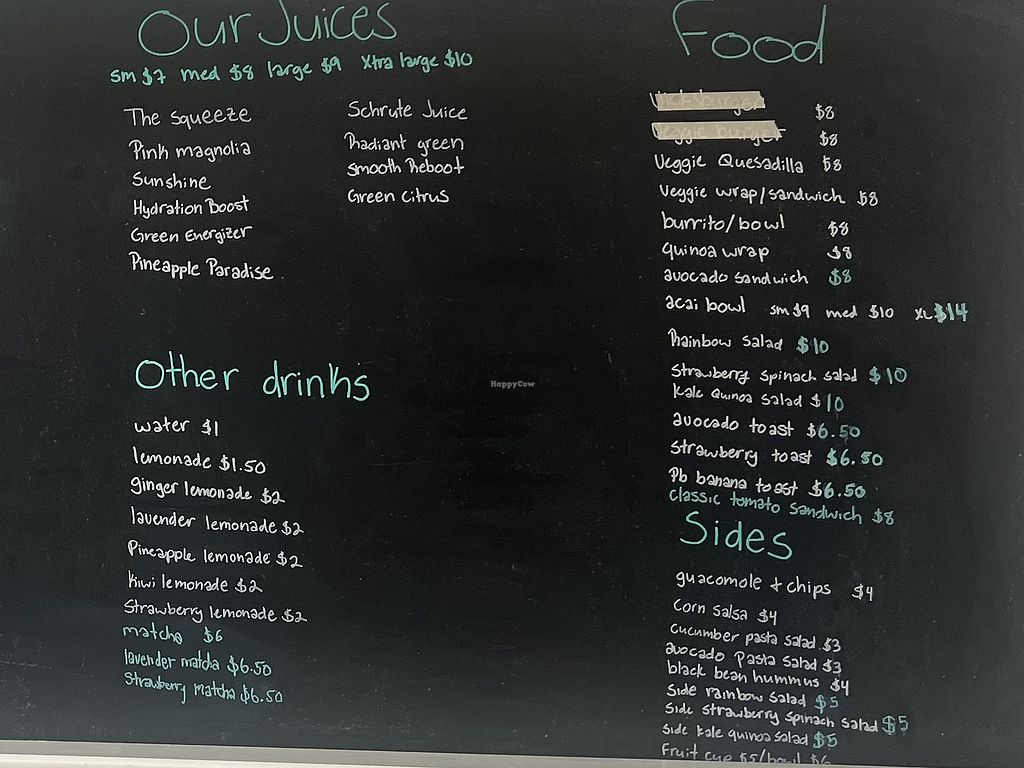 Our Juices
sm $7 med $8 large $9 Xtra large $10
The squeeze
Pink magnolia
Sunshine
Hydration Boost
Green Energizer
Pineapple Paradise
Schrute Juice
Radiant green
Smooth Reboot
Green citrus
Other drinks
water $1
lemonade $1.50
ginger lemonade $2
lavender lemonade $2
Pineapple lemonade $2
Kiwi lemonade $2
Strawberry lemonade $2
matcha $6
lavender matcha $6.50
Strawberry matcha $6.50
HappyCow
Food
$8
Veggie burger $8
Veggie Quesadilla $8
Veggie wrap/sandwich $8
burrito/bowl $8
quinoa wrap $8
avocado sandwich $8
acai bowl sm $9 med $10 XL $14
Rainbow salad $10
Strawberry spinach salad $10
Kale quinoa salad $10
avocado toast $6.50
Strawberry toast $6.50
Pb banana toast $6.50
classic tomato sandwich $8
Sides
guacomole + chips $4
Corn Salsa $4
cucumber pasta salad $3
avocado pasta salad $3
black bean hummus $4
Side rainbow salad $5
Side strawberry spinach salad $5
Side kale quinoa salad $5
Fruit cup $5/bowl $6